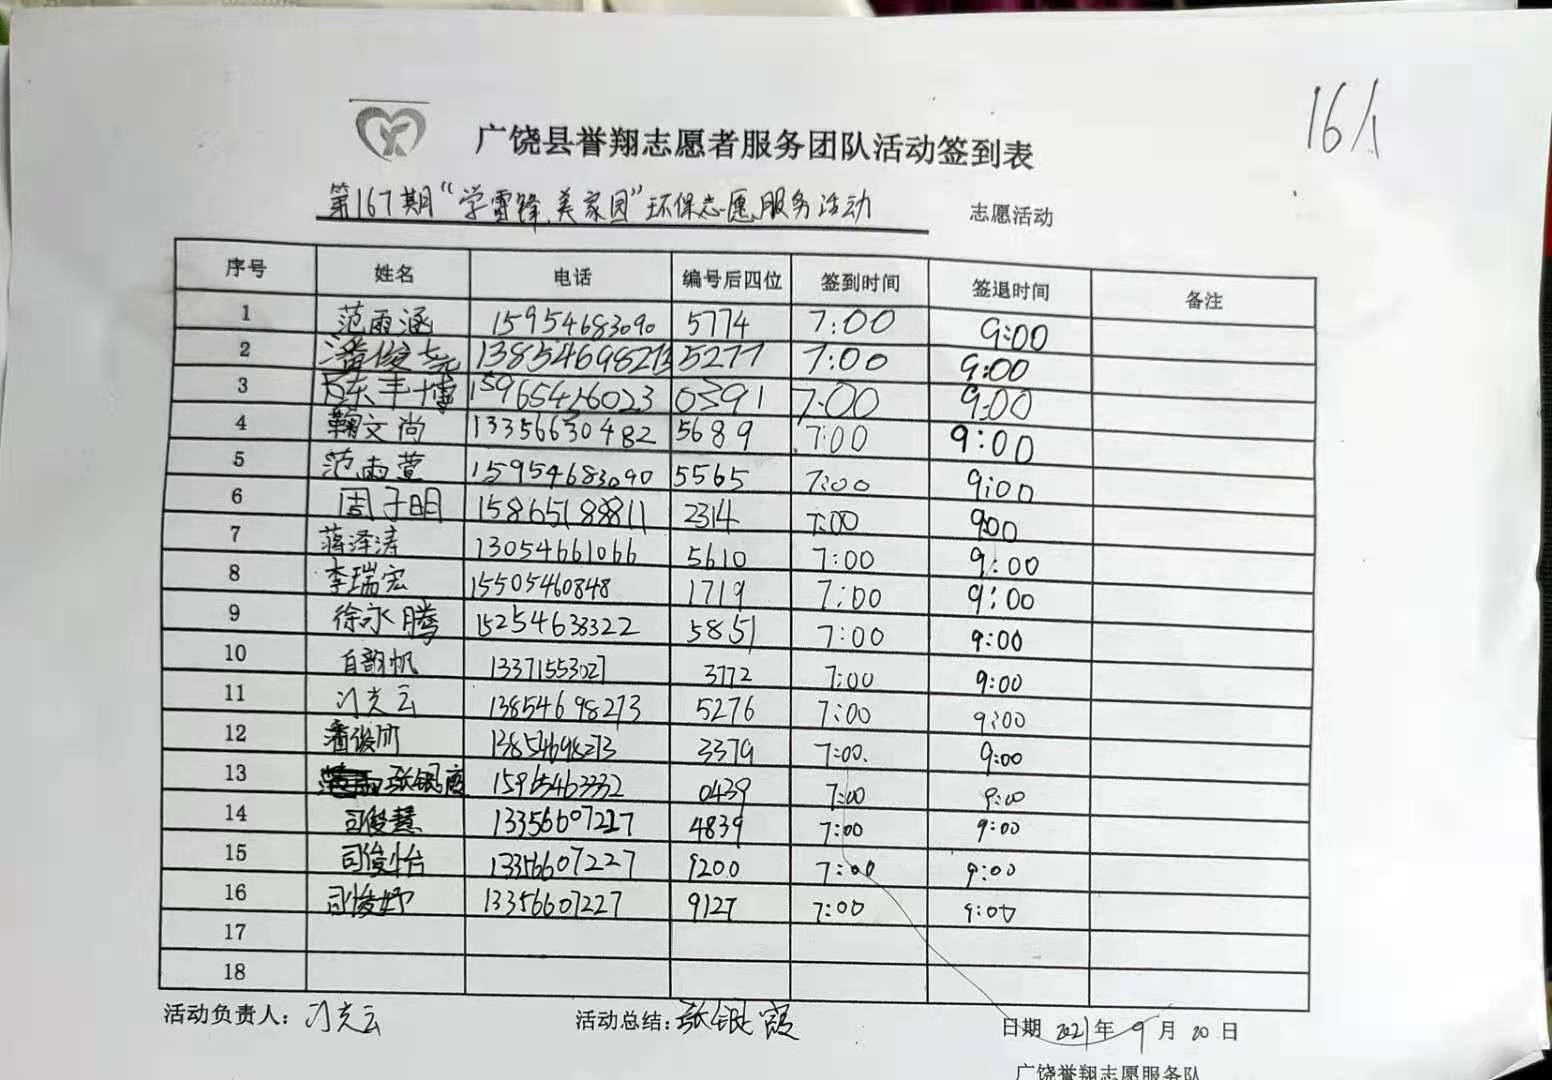 16人
广饶县誉翔志愿者服务团队活动签到表
第167期“学雷锋,美家园”环保志愿服务活动 志愿活动
序号 姓名 电话 编号后四位 签到时间 签退时间 备注
1 范雨涵 15954683090 5774 7:00 9:00
2 潘俊尧 13854698273 5277 7:00 9:00
3 陈丰博 15965426023 0391 7:00 9:00
4 鞠文尚 13356630482 5689 7:00 9:00
5 范雨萱 15954683090 5565 7:00 9:00
6 周子明 15865188811 2314 7:00 9:00
7 蒋泽涛 13054661066 5610 7:00 9:00
8 李瑞宏 15505460848 1719 7:00 9:00
9 徐永腾 15254638322 5851 7:00 9:00
10 13371553027 3772 7:00 9:00
11 刁光云 13854698273 5276 7:00 9:00
12 潘俊竹 13854698273 3379 7:00 9:00
13 张银霞 15965463332 0439 7:00 9:00
14 司俊慧 13356607227 4839 7:00 9:00
15 司俊怡 13356607227 9200 7:00 9:00
16 司俊妤 13356607227 9127 7:00 9:00
17
18
活动负责人: 刁光云 活动总结: 张银霞 日期 2021年 9月 20日
广饶誉翔志愿服务队